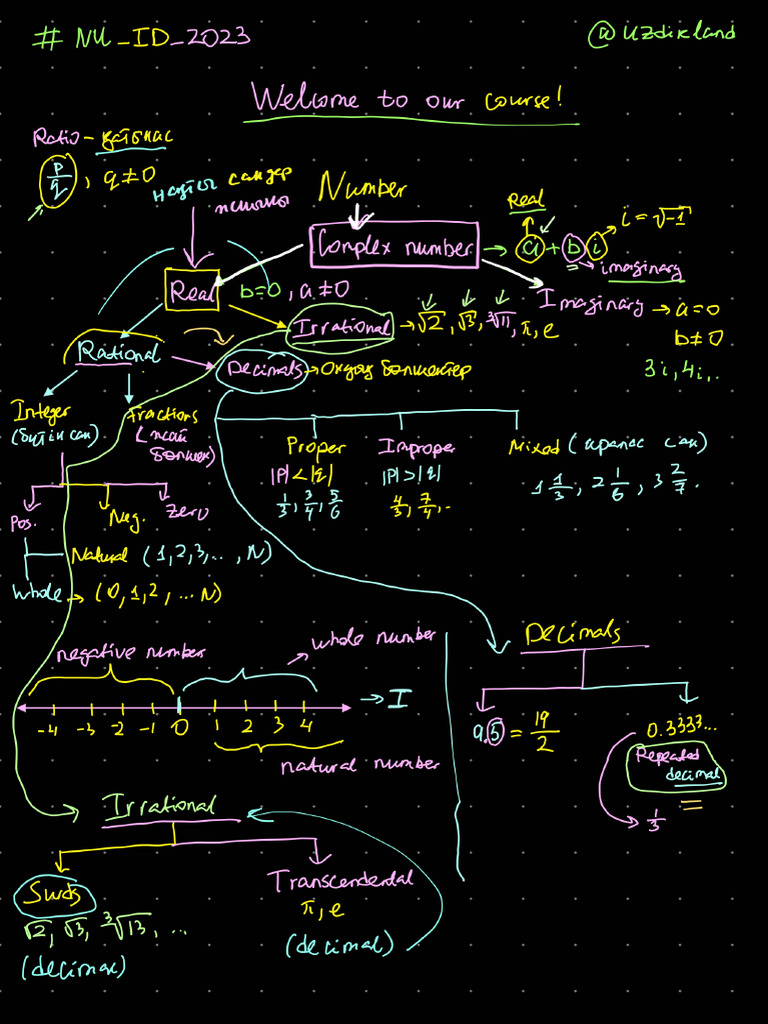 # NU_ID_2023
@uzdikland
Welcome to our course!
Ratio -
p/q, q≠0
сандар
Number
Complex number → a + b i
Real
i = √-1
imaginary
Real
b=0, a≠0
Imaginary → a=0
b≠0
3i, 4i,.
Irrational → √2, √3, ³√11, π, e
Rational
Decimals →
Integer
(бүтін сан)
Fractions
Proper
|p|<|q|
1/3, 3/4, 5/6
Improper
|p|>|q|
4/3, 7/4, ..
Mixed (аралас сан)
1 1/3, 2 1/6, 3 2/7.
Pos.
Neg.
Zero
Natural (1,2,3,..., N)
Whole → (0,1,2, ... N)
negative number
whole number
-4 -3 -2 -1 0 1 2 3 4
→ I
natural number
Decimals
9.5 = 19/2
0.3333...
Repeated
decimal
=
1/3
Irrational
Surds
√2, √3, ³√13, ...
(decimal)
Transcendental
π, e
(decimal)